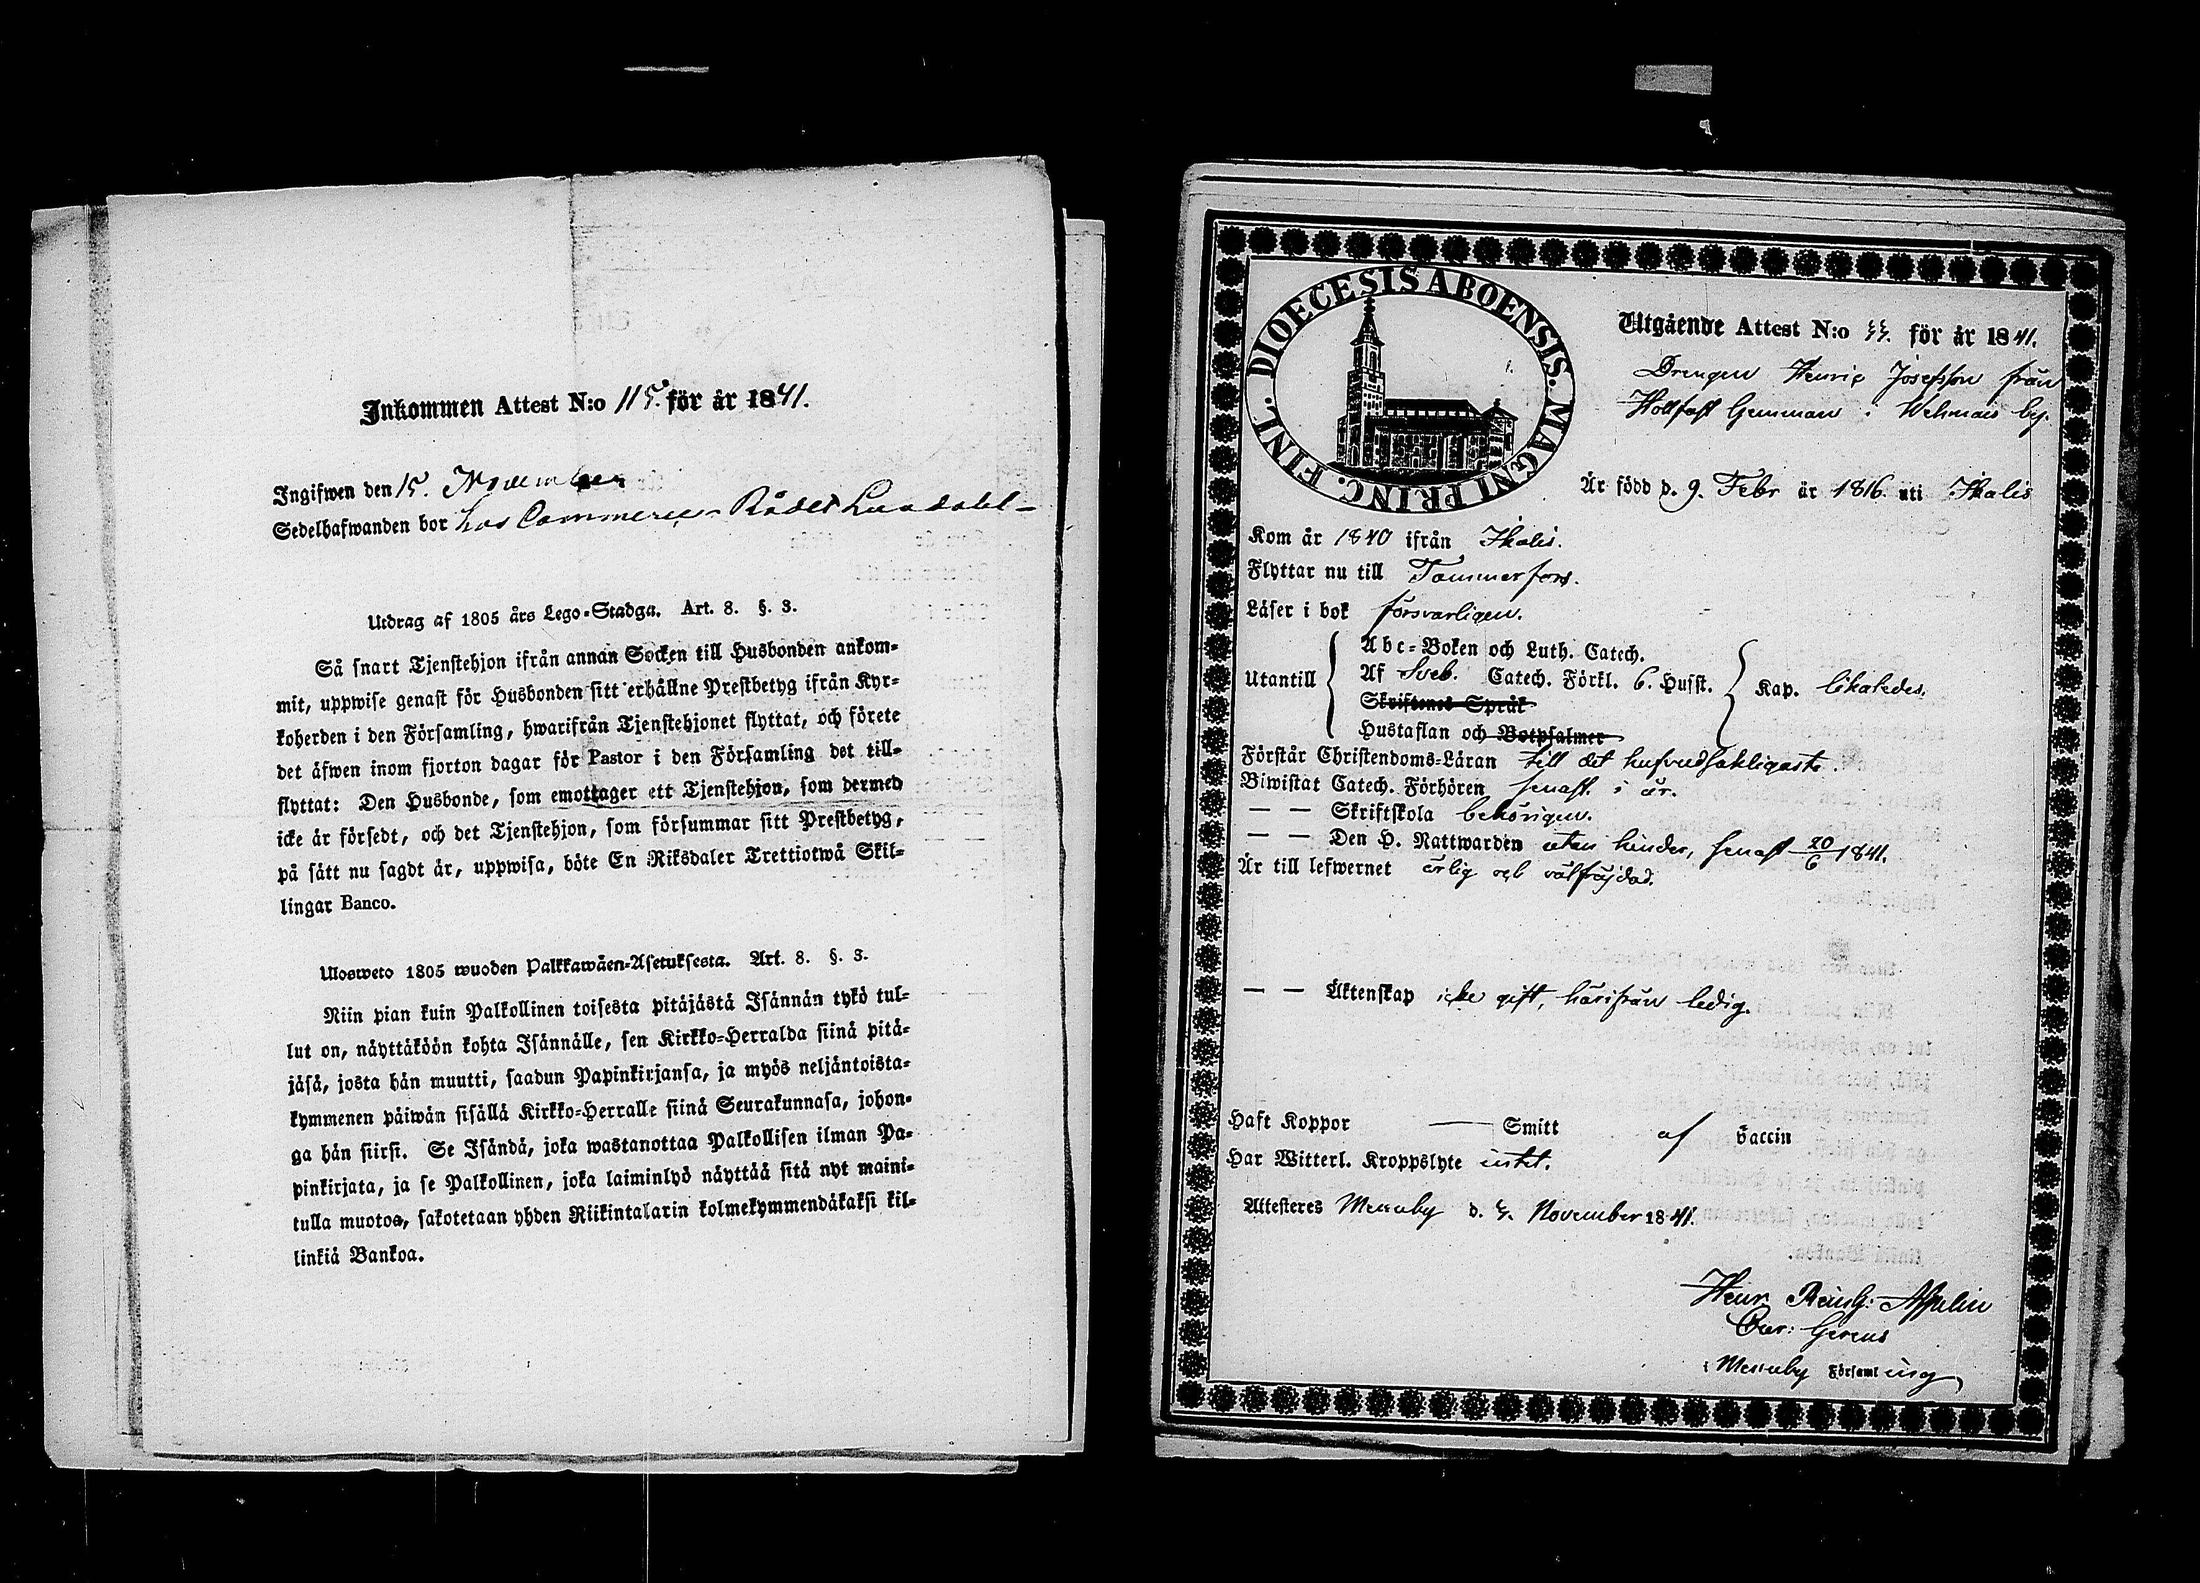 Inkommen Attest N:o 115. för år 1841.
Ingifwen den 15. November
Sedelhafwanden bor hos Commerce-Rådet Lundahl
Utdrag af 1805 års Lego-Stadga. Art. 8. §. 3.
Så snart Tjenstehjon ifrån annan Socken till Husbonden ankom-
mit, uppwise genast för Husbonden sitt erhållne Prestbetyg ifrån Kyr-
koherden i den Församling, hwarifrån Tjenstehjonet flyttat, och förete
det äfwen inom fjorton dagar för Pastor i den Församling det till-
flyttat: Den Husbonde, som emottager ett Tjenstehjon, som dermed
icke är försedt, och det Tjenstehjon, som försummar sitt Prestbetyg,
på sätt nu sagdt är, uppwisa, böte En Riksdaler Trettiotwå Skil-
lingar Banco.
Ulosweto 1805 wuoden Palkkawäen-Asetuksesta. Art. 8. §. 3.
Niin pian kuin Palkollinen toisesta pitäjästä Isännän tykö tul-
lut on, näyttäköön kohta Isännälle, sen Kirkko-Herralda siinä pitä-
jäsä, josta hän muutti, saadun Papinkirjansa, ja myös neljäntoista-
kymmenen päiwän sisällä Kirkko-Herralle siinä Seurakunnasa, johon-
ga hän siirsi. Se Isändä, joka wastanottaa Palkollisen ilman Pa-
pinkirjata, ja se Palkollinen, joka laiminlyö näyttää sitä nyt maini-
tulla muotoa, sakotetaan yhden Riikintalarin kolmekymmendäkaksi kil-
linkiä Bankoa.
DIOECESIS ABOENSIS. MAGNI PRINC. FINL.
Utgående Attest N:o 55. för år 1841.
Drengen Henric Josefsson från
Hollfast Gemman i Wehmais by.
Är född d. 9. Febr år 1816. uti Ikalis
Kom år 1840 ifrån Ikalis.
Flyttar nu till Tammerfors.
Läser i bok försvarligen.
Utantill
Abc-Boken och Luth. Catech.
Af Sveb. Catech. Förkl. 6. Hufst. Kap. likaledes.
Skriftenes Språk
Hustaflan och Botpsalmer
Förstår Christendoms-Läran till det hufvudsakligaste.
Biwistat Catech. Förhören senast i år.
— — Skriftskola behörigen.
— — Den H. Nattwarden utan hinder, senast 20/6 1841.
Är till lefwernet ärlig och välfräjdad.
— — Äktenskap icke gift, härifrån ledig.
Haft Koppor — Smitt af Vaccin
Har Witterl. Kroppslyte intet.
Attesteres Messuby d. 5. November 1841.
Henr. Reinh: Asplin
Cur: Gerens
i Messuby Församling